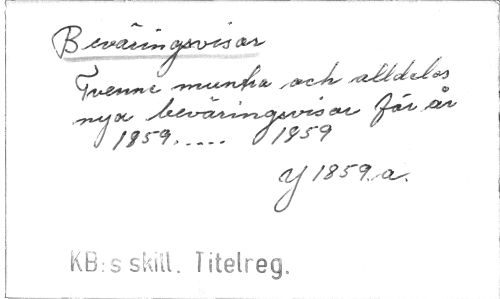 Beväringsvisor
Tvenne muntra och alldeles
nya beväringsvisor för år
1859..... 1859
Y 1859.a.
KB:s skill. Titelreg.